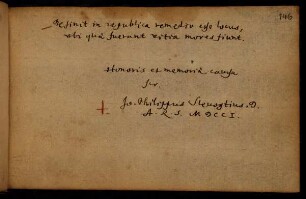 146
Desinit in republica remedio esse locus,
ubi quæ fuerunt vitia mores fiunt.
Honoris et memoriæ causa
scr.
Jo. Philippus Slevogtius. D.
A. R. S. MDCCI.